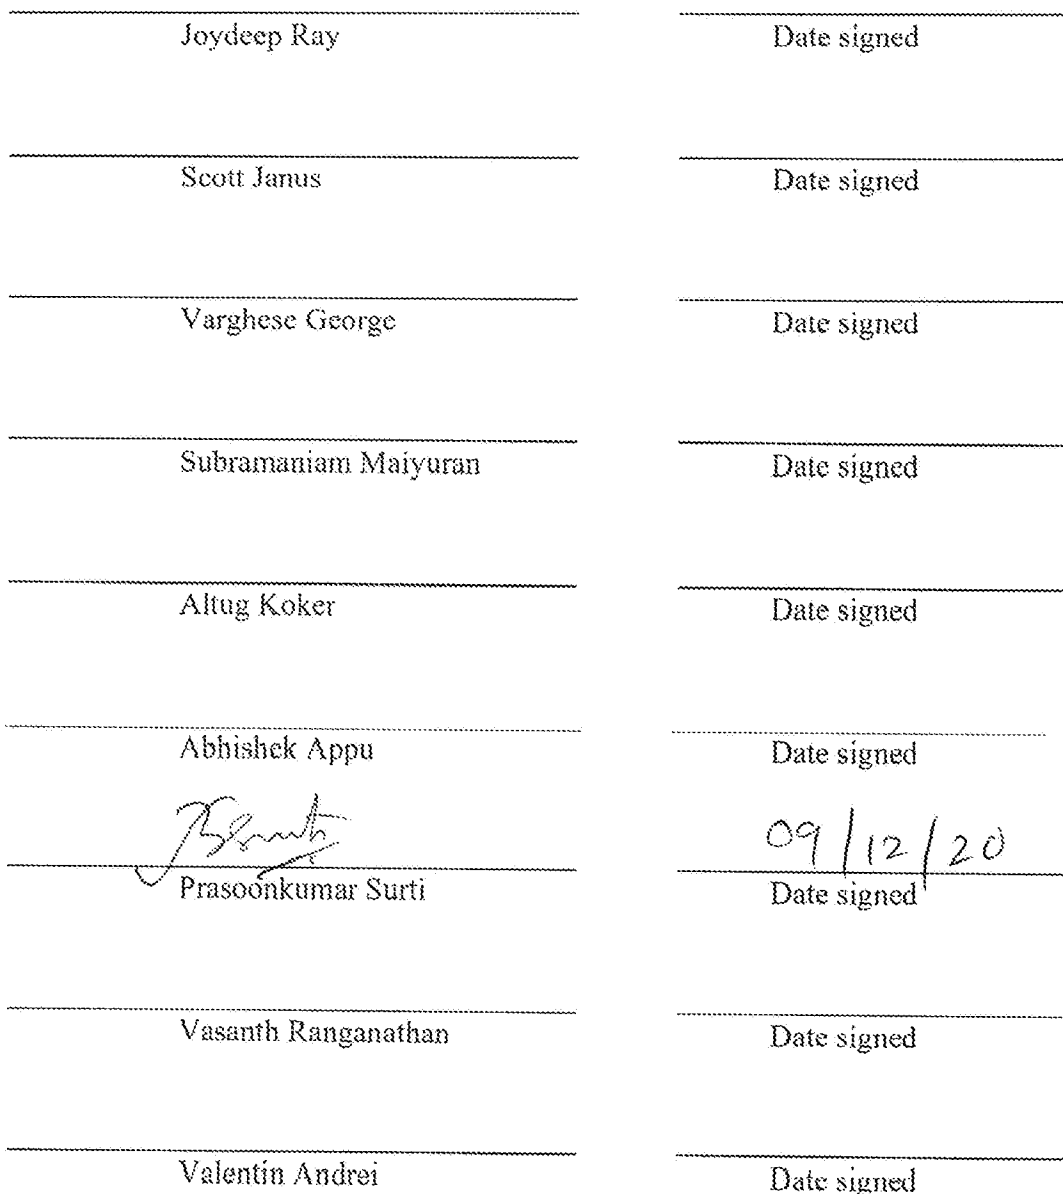 Joydeep Ray Date signed
Scott Janus Date signed
Varghese George Date signed
Subramaniam Maiyuran Date signed
Altug Koker Date signed
Abhishek Appu Date signed
09/12/20
Prasoonkumar Surti Date signed
Vasanth Ranganathan Date signed
Valentin Andrei Date signed